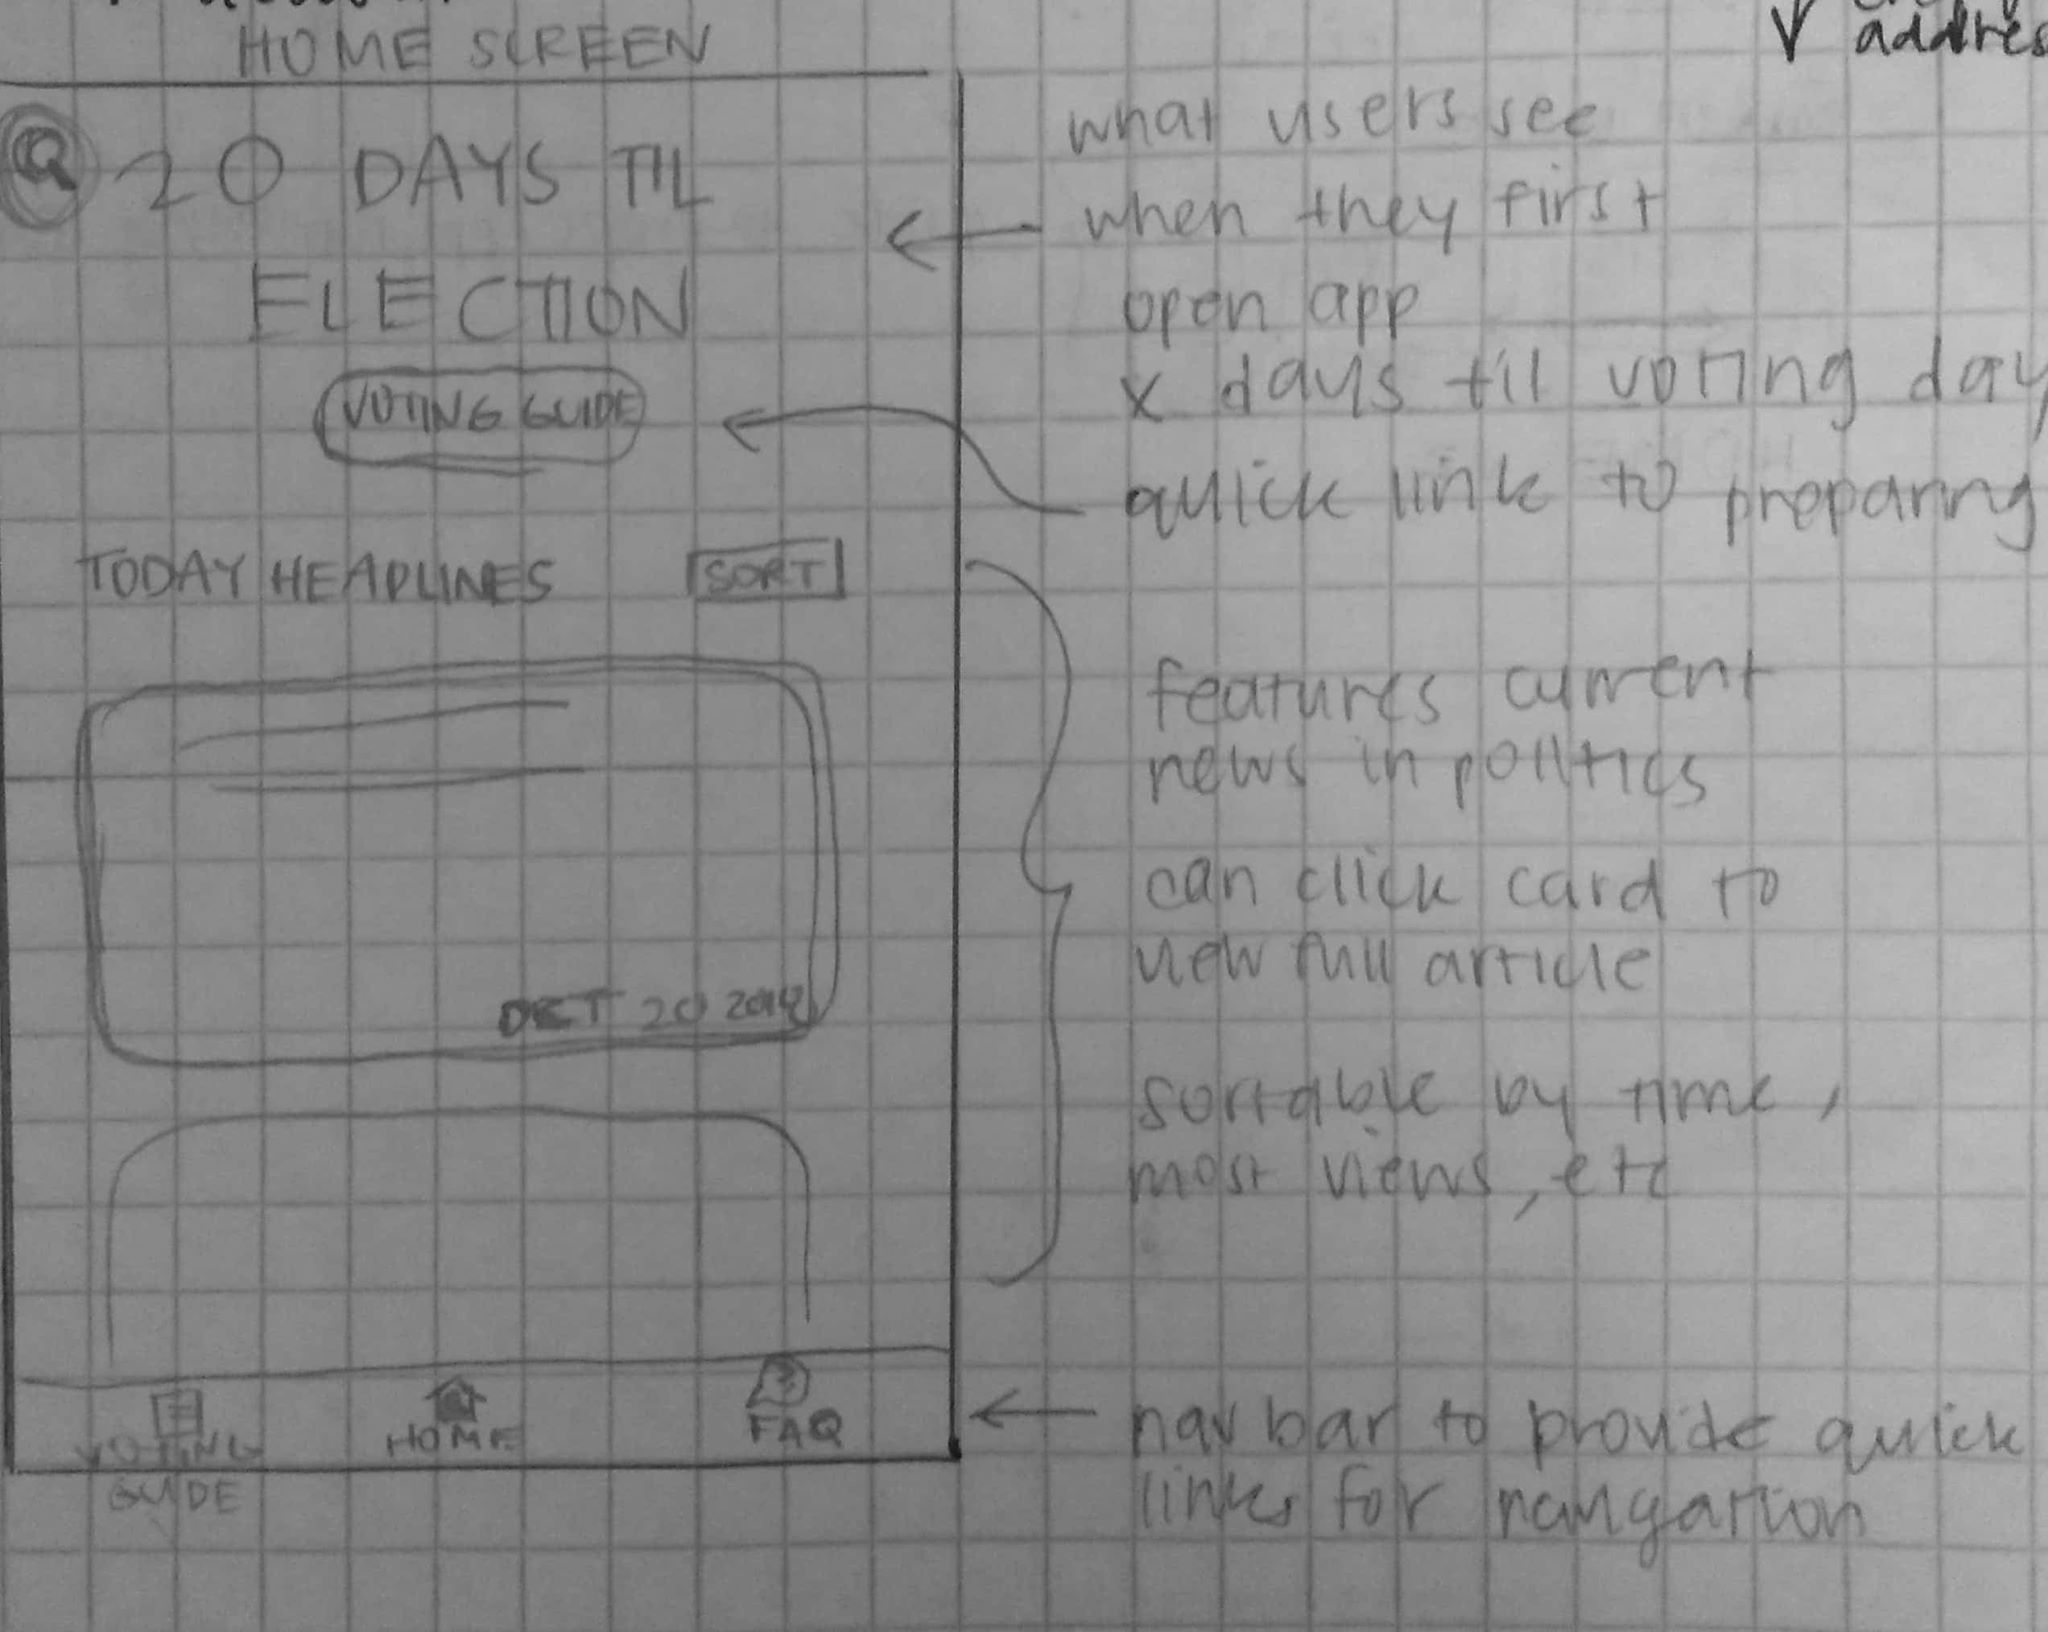 HOME SCREEN
addres
20 DAYS TIL
ELECTION
VOTING GUIDE
TODAY HEADLINES
SORT
OCT 20 2018
VOTING
GUIDE
HOME
?
FAQ
what users see
when they first
open app
x days til voting day
quick link to preparing
features current
news in politics
can click card to
view full article
sortable by time,
most views, etc
nav bar to provide quick
links for navigation